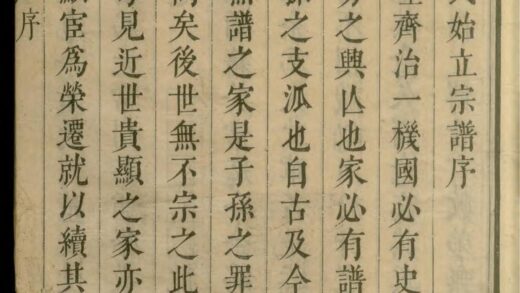 始立宗譜序
齊治一機國必有史
之興亾也家必有譜
之支泒也自古及今
無譜之家是子孫之罪
尚矣後世無不宗之此
見近世貴顯之家亦
宦爲榮遷就以續其
序